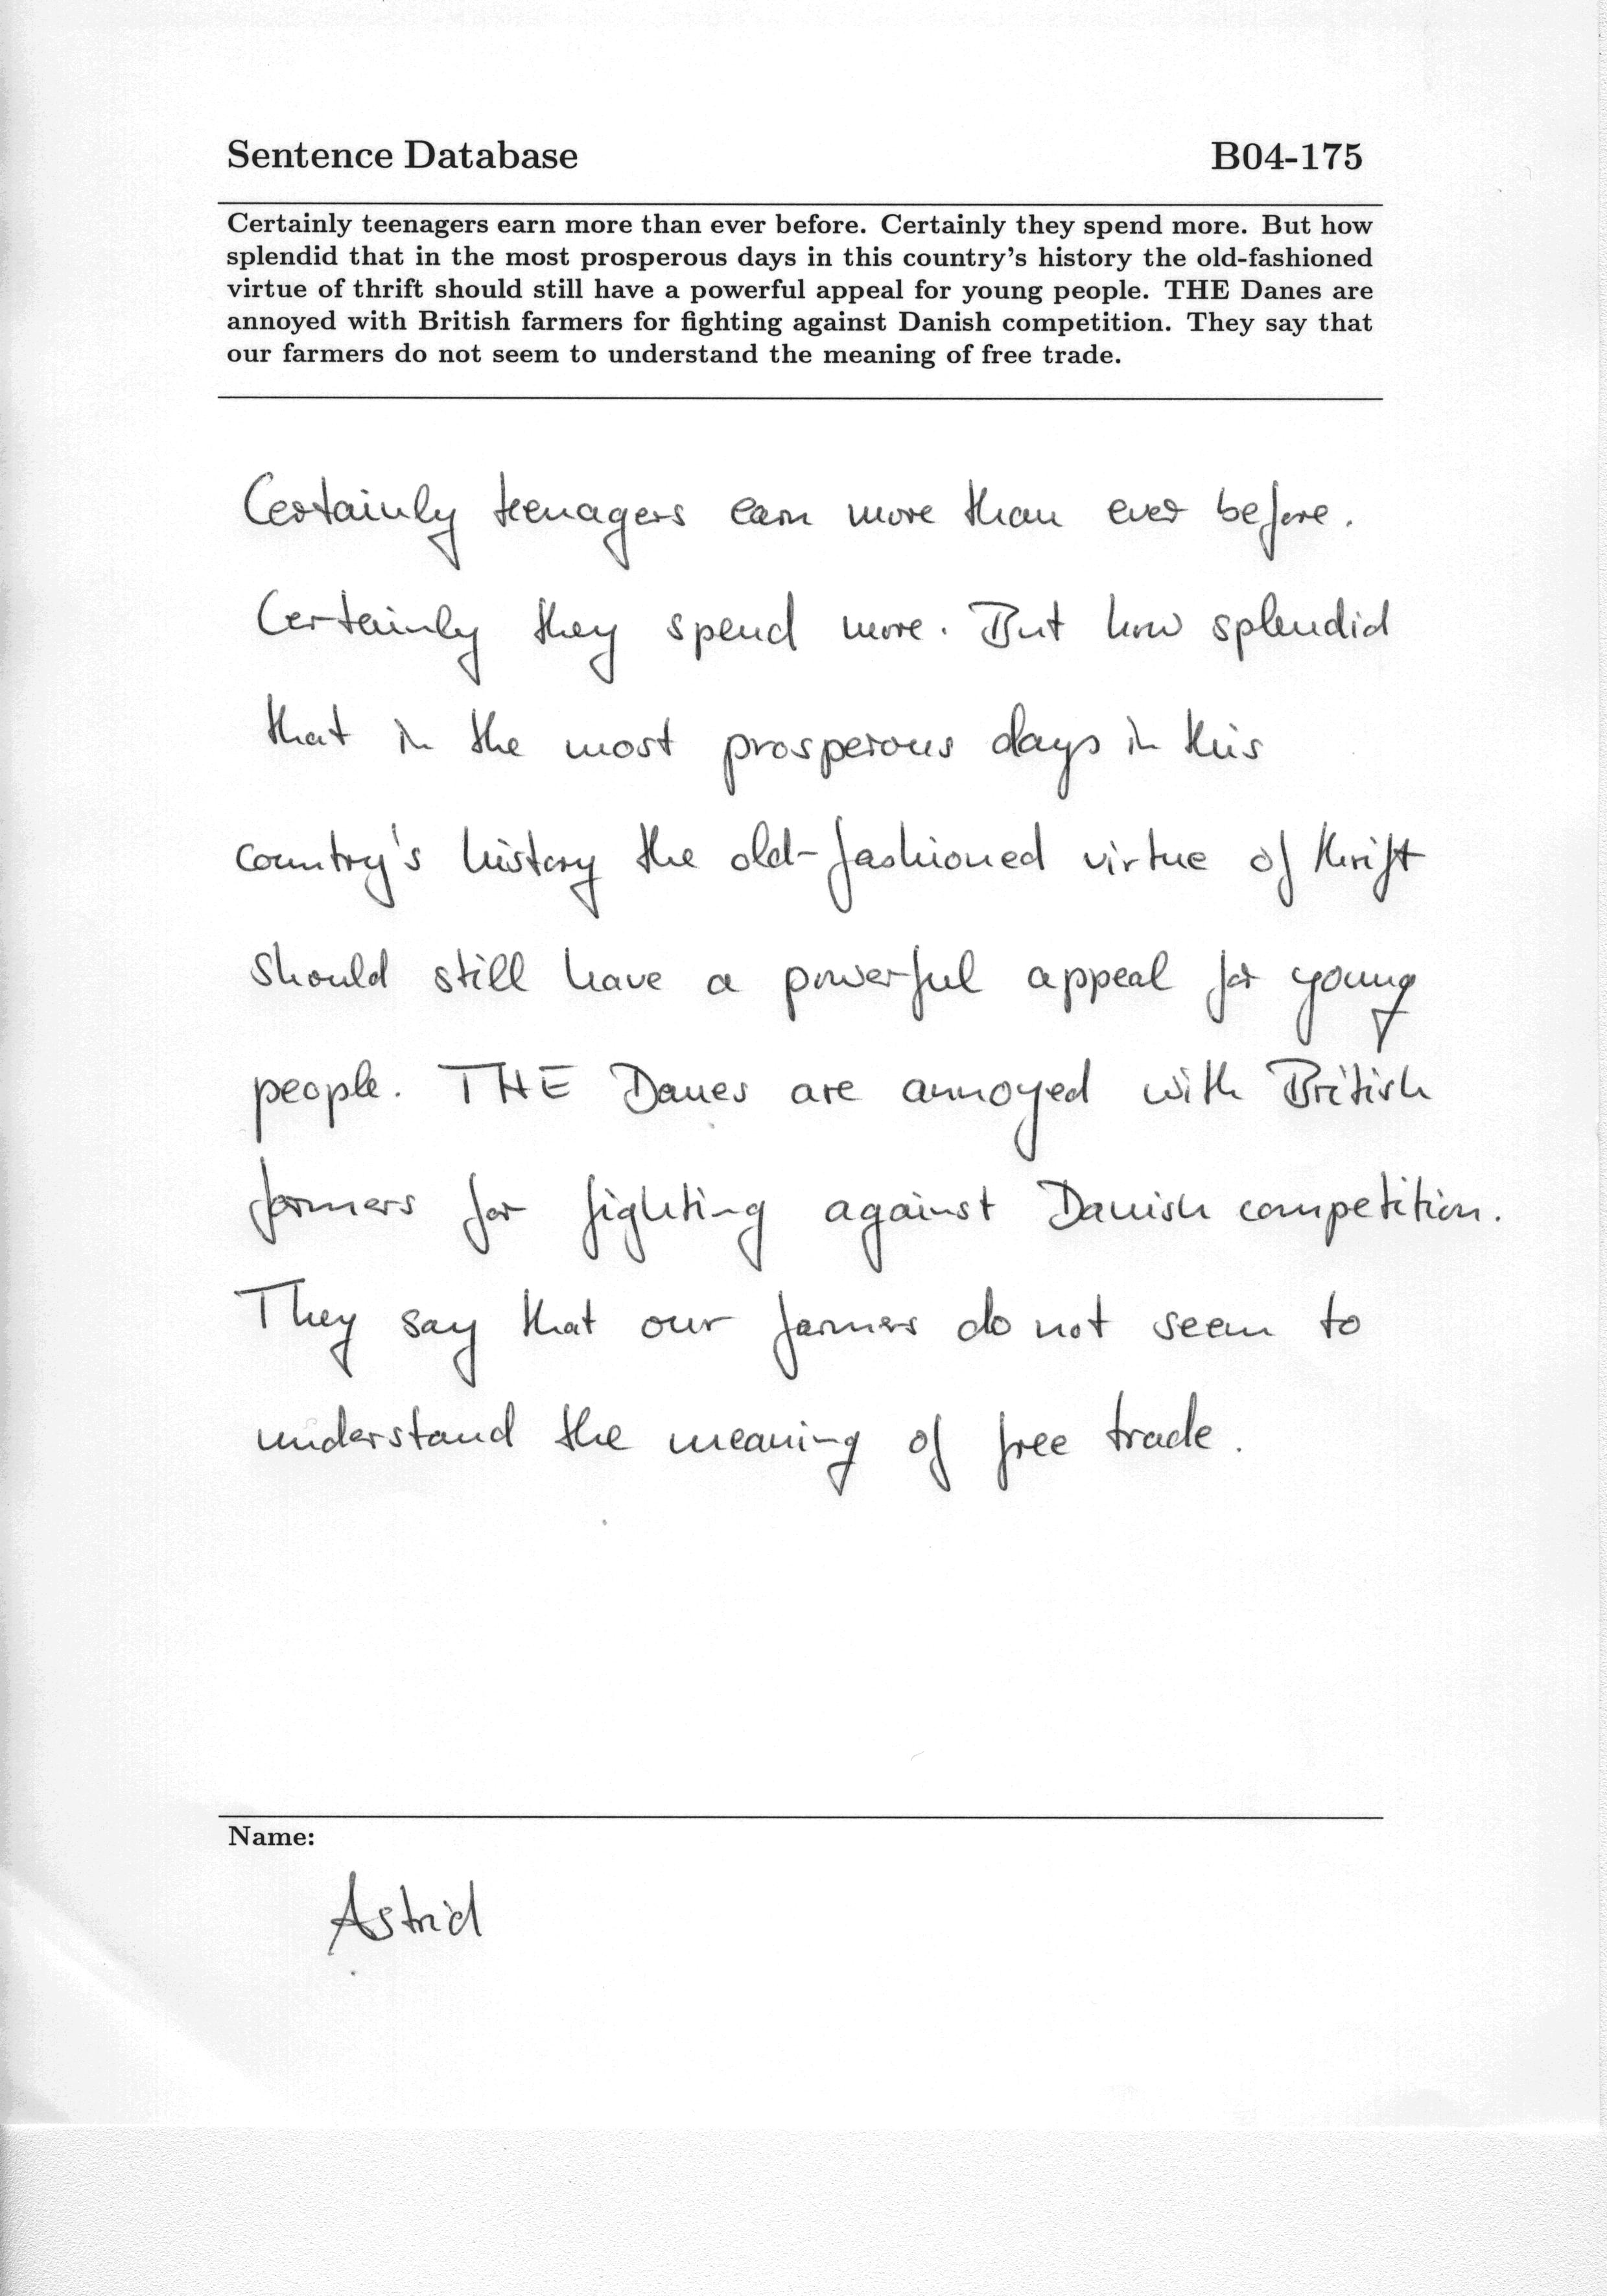 Sentence Database B04-175
Certainly teenagers earn more than ever before. Certainly they spend more. But how
splendid that in the most prosperous days in this country's history the old-fashioned
virtue of thrift should still have a powerful appeal for young people. THE Danes are
annoyed with British farmers for fighting against Danish competition. They say that
our farmers do not seem to understand the meaning of free trade.
Certainly teenagers earn more than ever before.
Certainly they spend more. But how splendid
that in the most prosperous days in this
country's history the old-fashioned virtue of thrift
should still have a powerful appeal for young
people. THE Danes are annoyed with British
farmers for fighting against Danish competition.
They say that our farmers do not seem to
understand the meaning of free trade.
Name:
Astrid